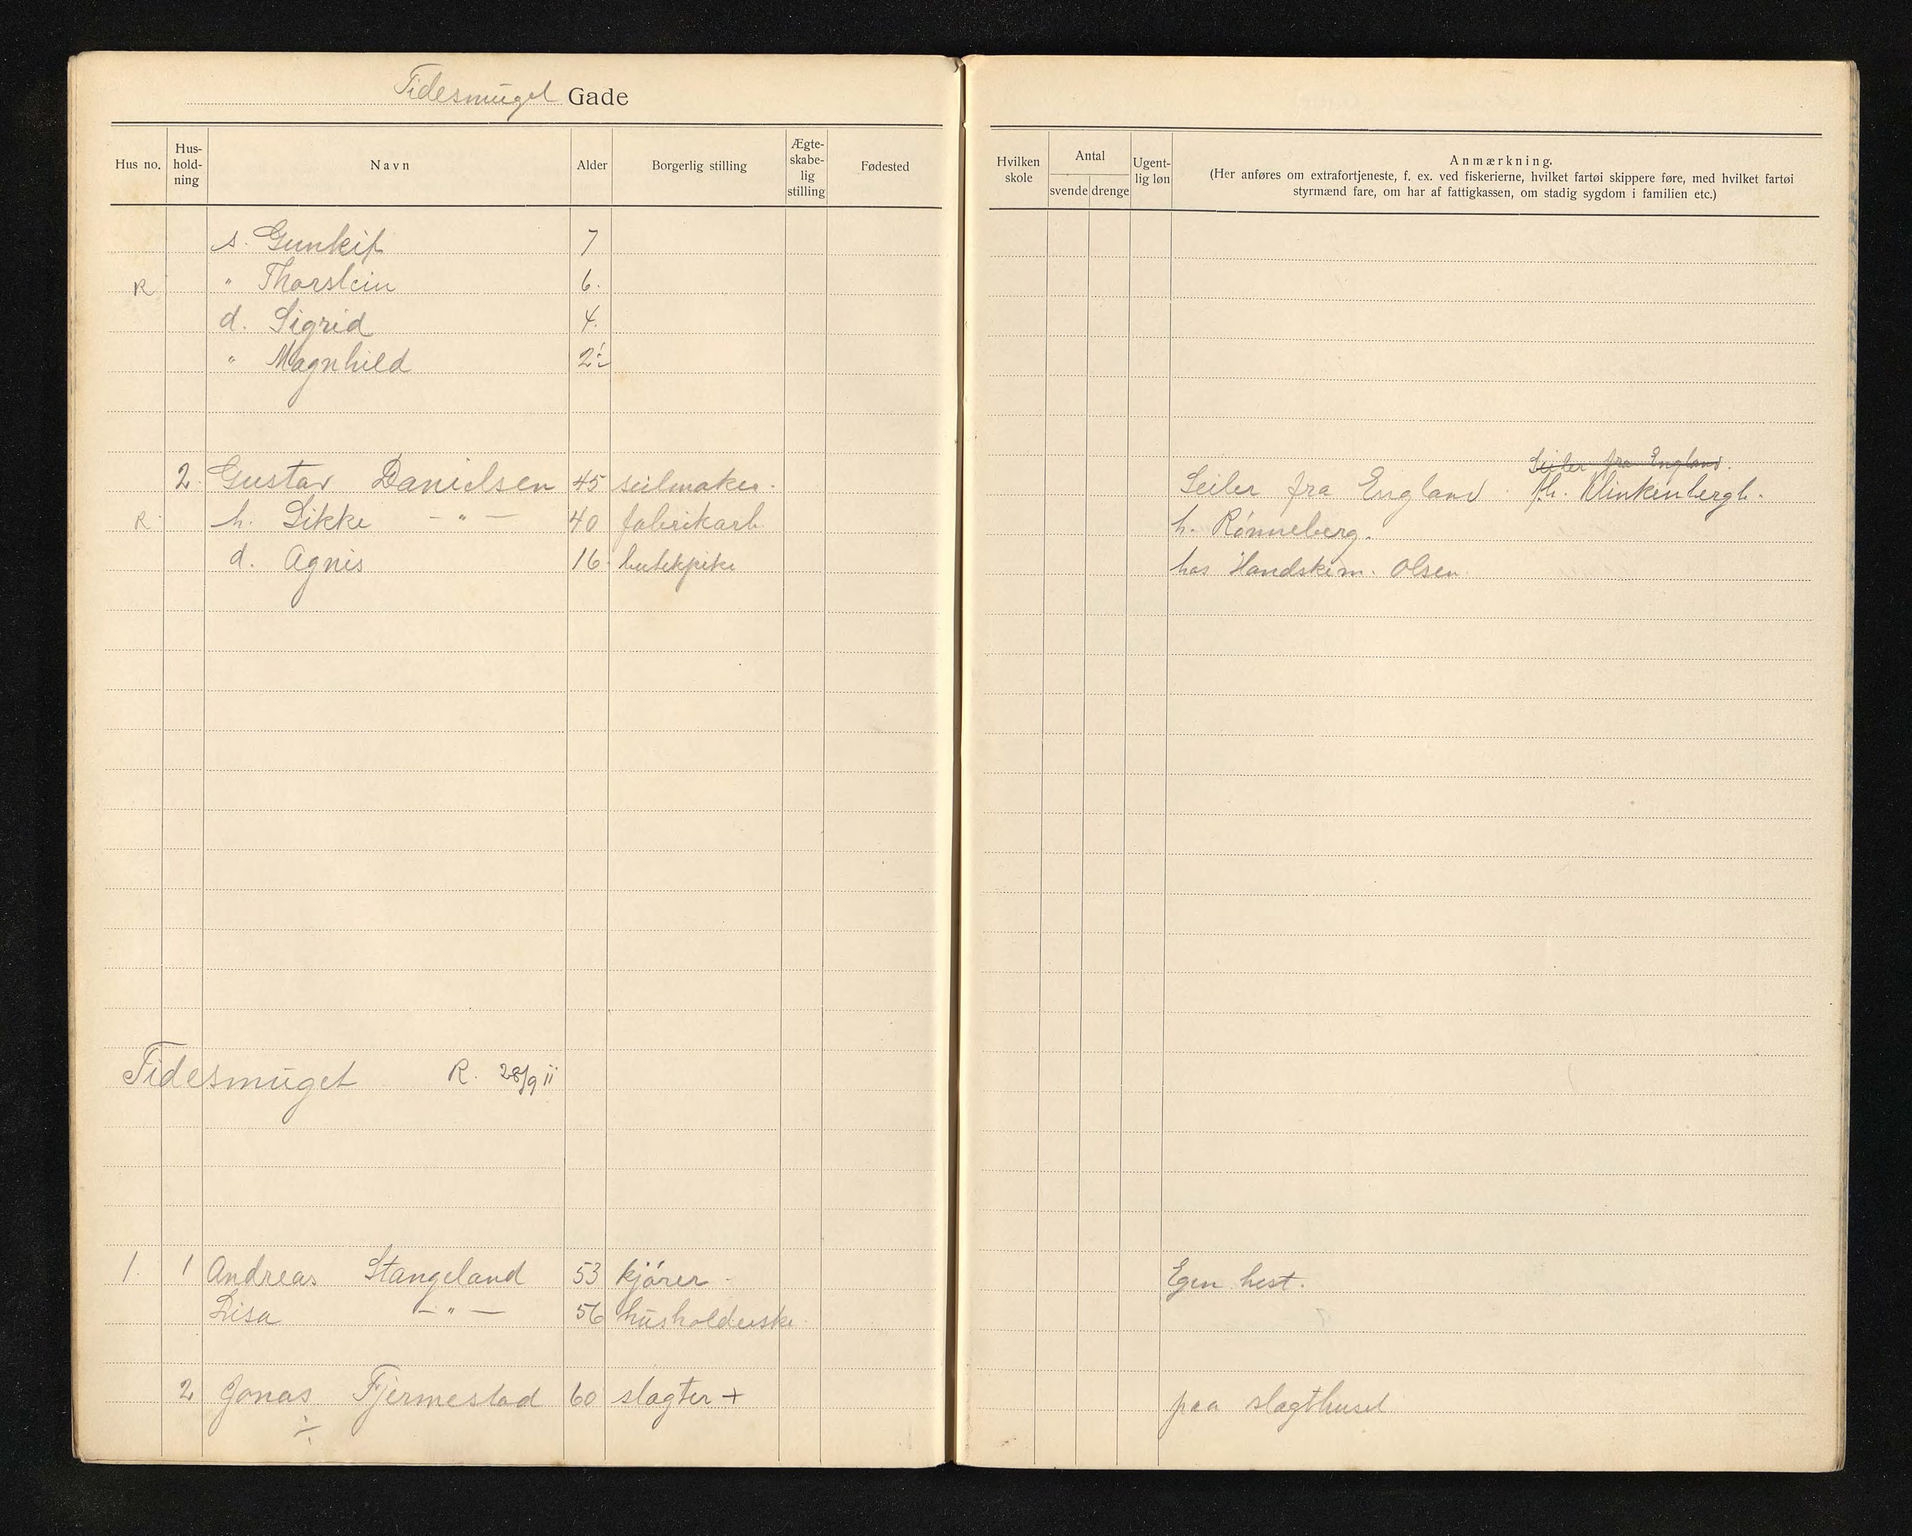 Tidesmuget Gade
Hus no. Hus-hold-ning Navn Alder Borgerlig stilling Ægte-skabe-lig stilling Fødested Hvilken skole Antal svende drenge Ugent-lig løn Anmærkning.
(Her anføres om extrafortjeneste, f. ex. ved fiskerierne, hvilket fartøi skippere føre, med hvilket fartøi
styrmænd fare, om har af fattigkassen, om stadig sygdom i familien etc.)
s. 7
R " Thorstein 6.
d. Sigrid 4.
" Magnhild 2
Seiler fra England.
2. Gustav Danielsen 45 seilmaker. Seiler fra England. h. Klinkenbergh.
R. h. Sikke — " — 40 fabrikarb. h. Rønneberg.
d. Agnes 16. butikpike hos Handskem. Olsen.
Tidesmuget R. 28/9 11
1. 1 Andreas Stangeland 53 kjører. Egen hest.
Lisa — " — 56 husholderske
2 Jonas Fjermestad 60 slagter + paa slagthuset
÷